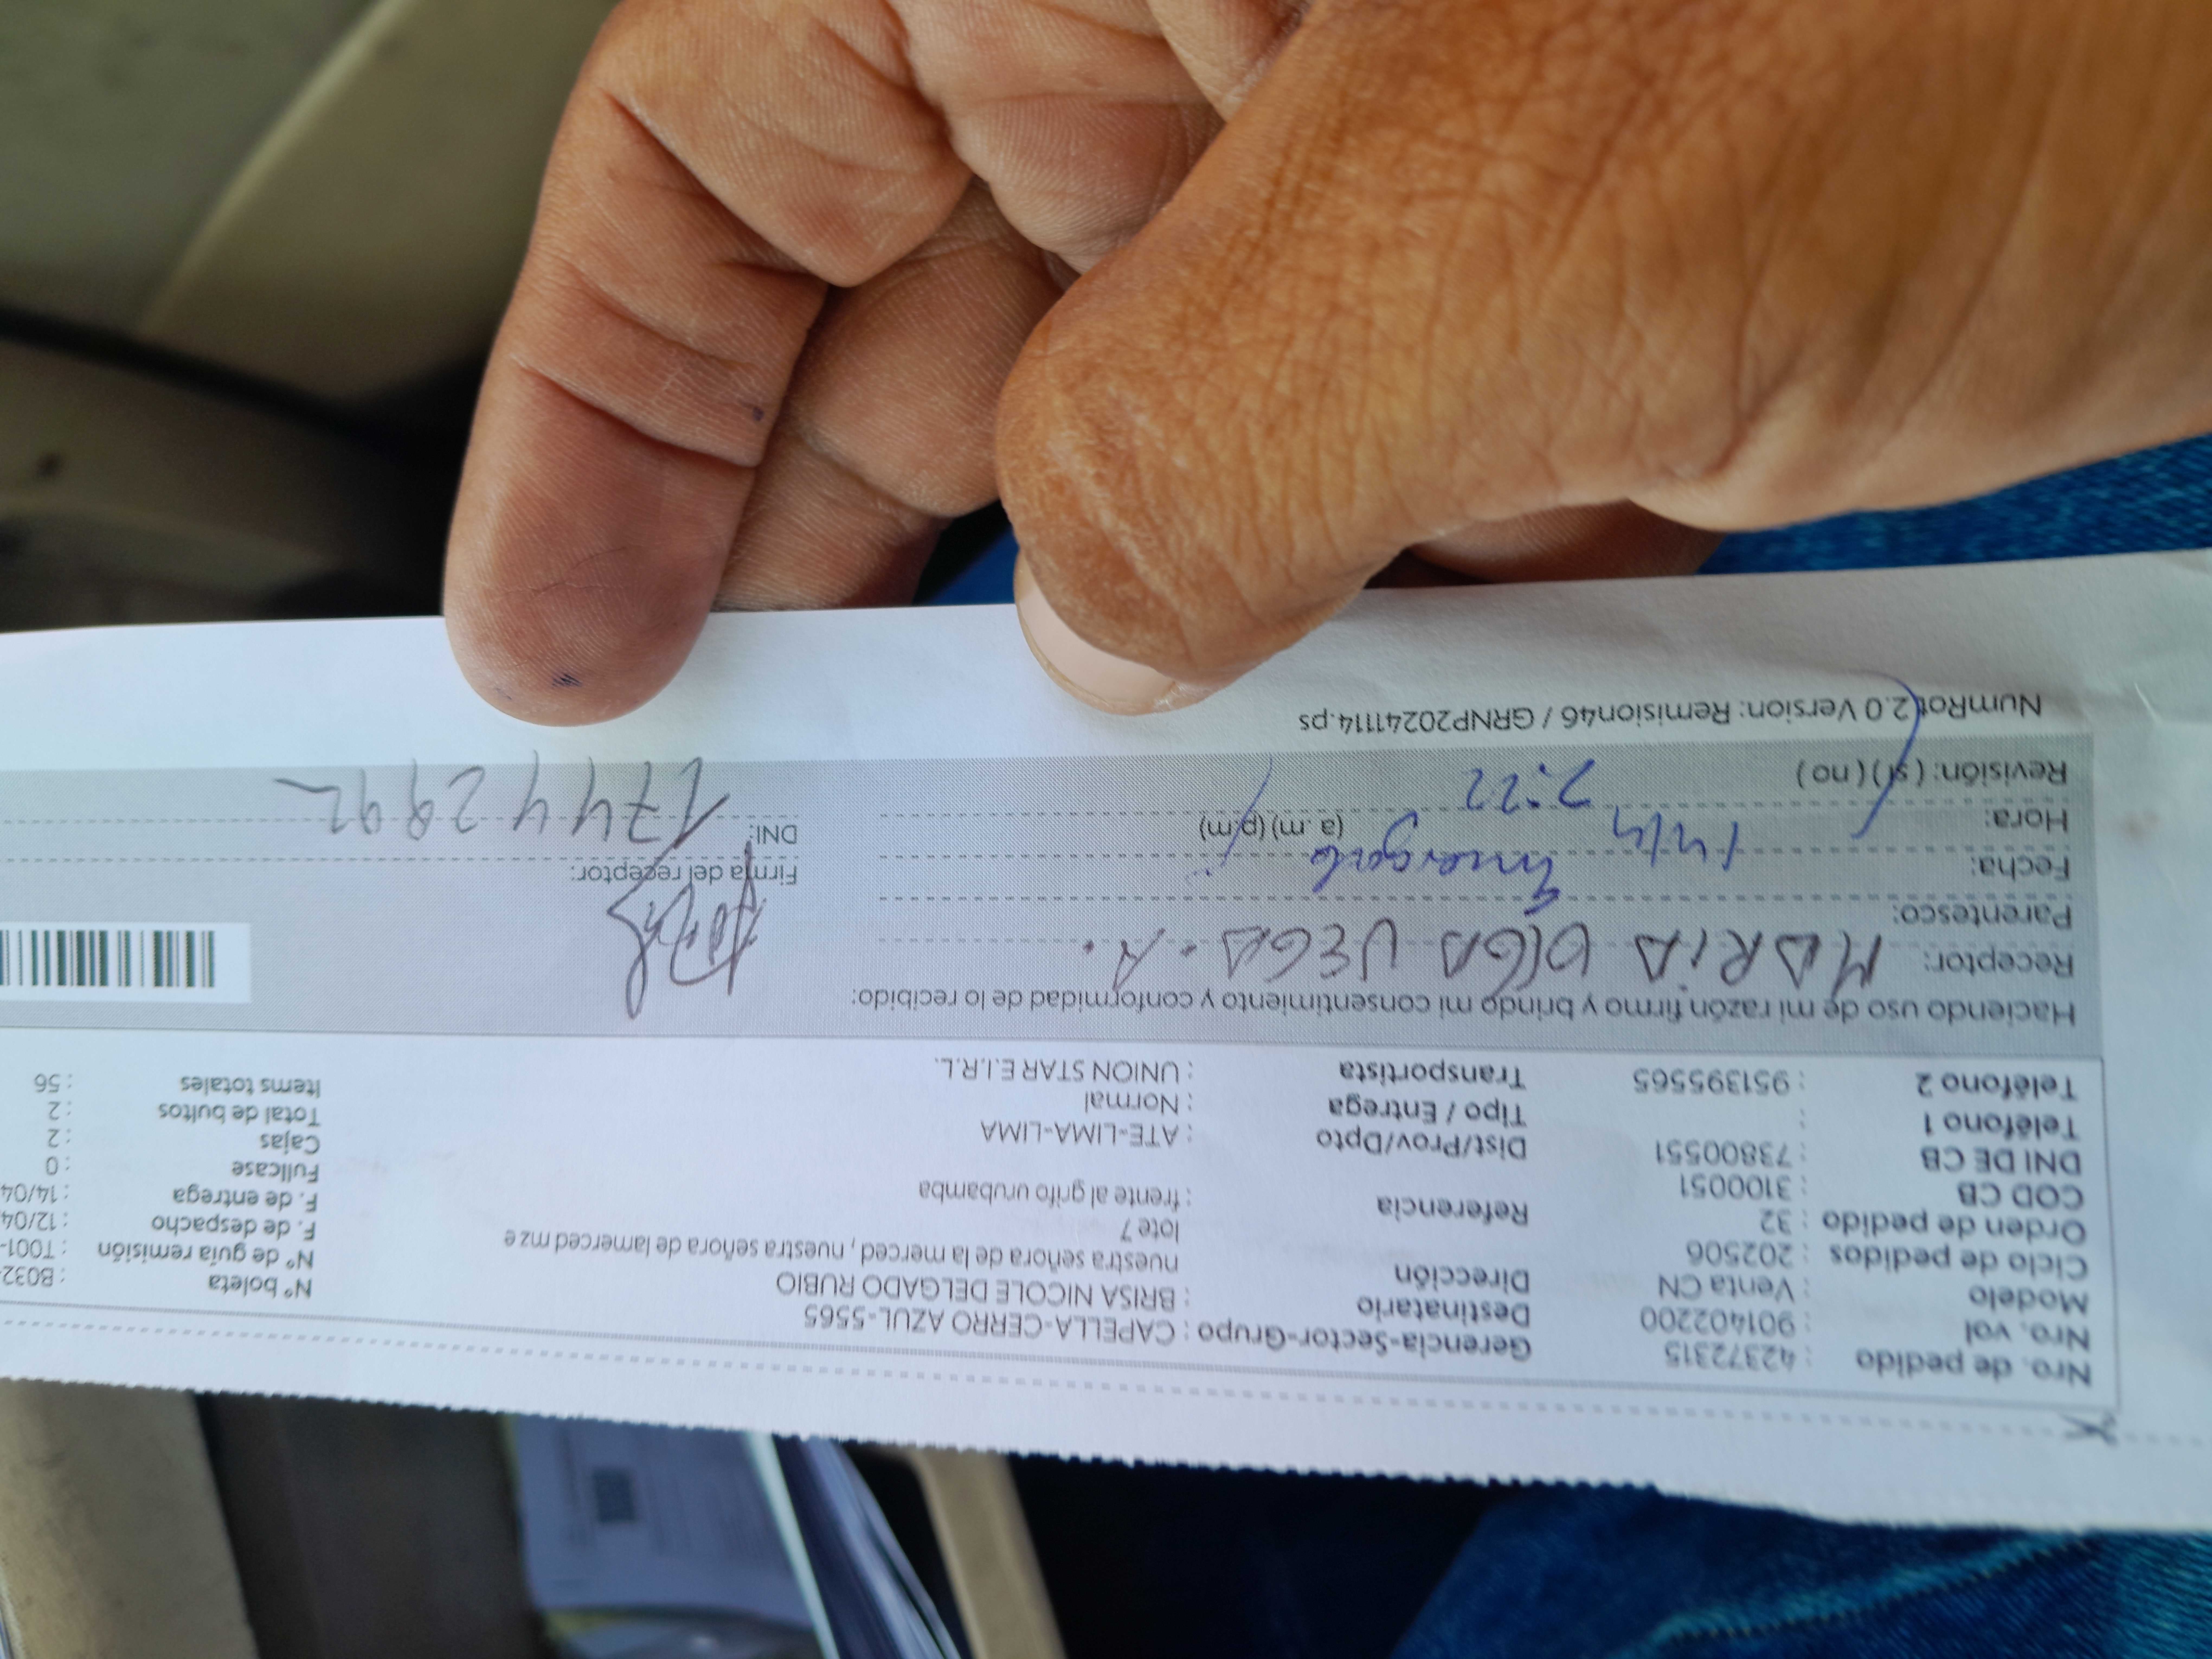 Nro. de pedido : 42372315
Nro. vol : 901402200
Modelo : Venta CN
Ciclo de pedidos : 202506
Orden de pedido : 32
COD CB : 3100051
DNI DE CB : 73800551
Teléfono 1 :
Teléfono 2 : 951395565
Gerencia-Sector-Grupo : CAPELLA-CERRO AZUL-5565
Destinatario : BRISA NICOLE DELGADO RUBIO
Dirección nuestra señora de la merced , nuestra señora de lamerced mz e
lote 7
Referencia : frente al grifo urubamba
Dist/Prov/Dpto : ATE-LIMA-LIMA
Tipo / Entrega : Normal
Transportista : UNION STAR E.I.R.L.
Nº boleta : B032-
Nº de guía remisión : T001-
F. de despacho : 12/04
F. de entrega : 14/04
Fullcase : 0
Cajas : 2
Total de bultos : 2
Items totales : 56
Haciendo uso de mi razón firmo y brindo mi consentimiento y conformidad de lo recibido:
Receptor: MARIA OLGA VEGA. A.
Parentesco:
Fecha: 14/4
Hora: 2:22 (a.m) (p.m)
Revisión: ( sí ) ( no )
Firma del receptor:
DNI: 17442892
NumRot 2.0 Version: Remision46 / GRNP20241114.ps